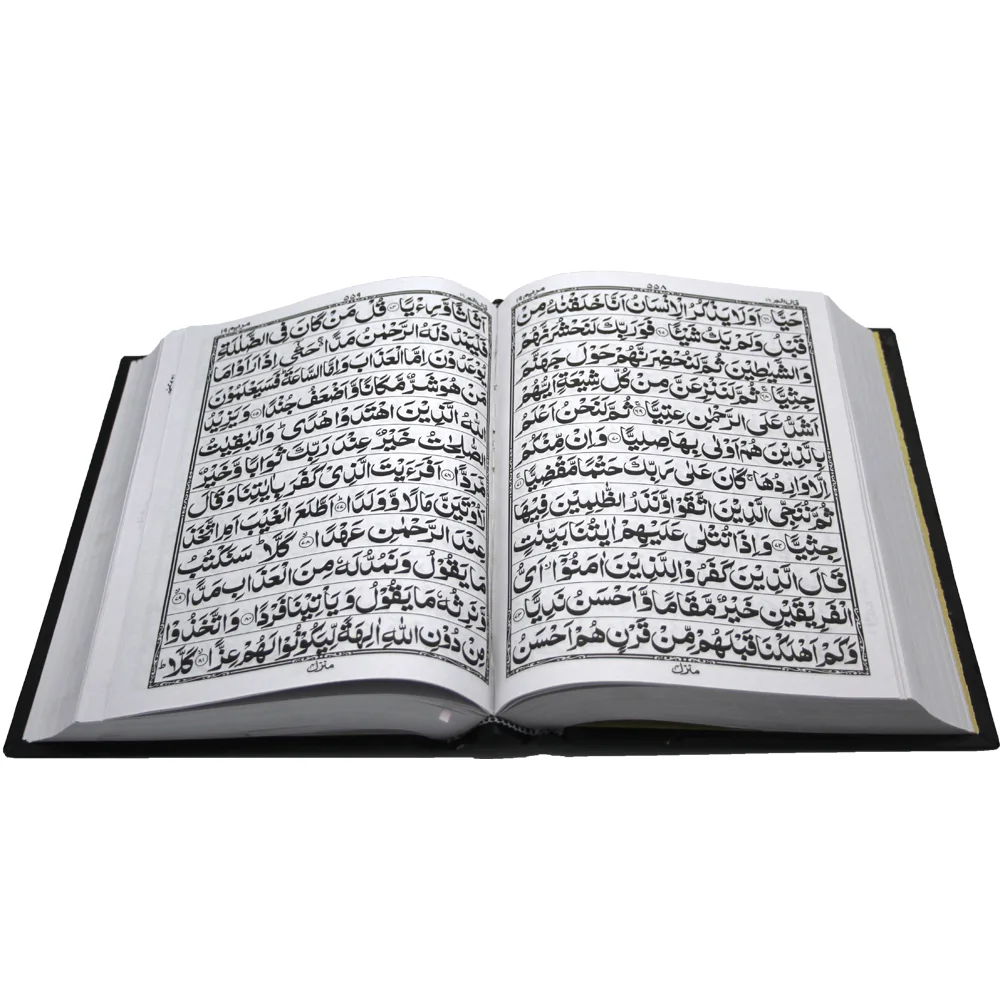 قال الم ١٦
۵۵۸
مریم ١٩
حَيًّا ﴿٦٦﴾ اَوَلَا يَذْكُرُ الْاِنْسَانُ اَنَّا خَلَقْنٰهُ مِنْ
قَبْلُ وَلَمْ يَكُ شَيْئًا ﴿٦٧﴾ فَوَرَبِّكَ لَنَحْشُرَنَّهُمْ
وَالشَّيٰطِيْنَ ثُمَّ لَنُحْضِرَنَّهُمْ حَوْلَ جَهَنَّمَ
جِثِيًّا ﴿٦٨﴾ ثُمَّ لَنَنْزِعَنَّ مِنْ كُلِّ شِيْعَةٍ اَيُّهُمْ
اَشَدُّ عَلَى الرَّحْمٰنِ عِتِيًّا ﴿٦٩﴾ ثُمَّ لَنَحْنُ اَعْلَمُ
بِالَّذِيْنَ هُمْ اَوْلٰى بِهَا صِلِيًّا ﴿٧٠﴾ وَاِنْ مِّنْكُمْ
اِلَّا وَارِدُهَا ۚ كَانَ عَلٰى رَبِّكَ حَتْمًا مَّقْضِيًّا ﴿٧١﴾
ثُمَّ نُنَجِّى الَّذِيْنَ اتَّقَوْا وَّنَذَرُ الظّٰلِمِيْنَ فِيْهَا
جِثِيًّا ﴿٧٢﴾ وَاِذَا تُتْلٰى عَلَيْهِمْ اٰيٰتُنَا بَيِّنٰتٍ
قَالَ الَّذِيْنَ كَفَرُوْا لِلَّذِيْنَ اٰمَنُوْۤا ۙ اَىُّ
الْفَرِيْقَيْنِ خَيْرٌ مَّقَامًا وَّاَحْسَنُ نَدِيًّا ﴿٧٣﴾
وَكَمْ اَهْلَكْنَا قَبْلَهُمْ مِّنْ قَرْنٍ هُمْ اَحْسَنُ
منزل
۵۵۹
مریم ١٩
اَثَاثًا وَّرِءْيًا ﴿٧٤﴾ قُلْ مَنْ كَانَ فِى الضَّلٰلَةِ
فَلْيَمْدُدْ لَهُ الرَّحْمٰنُ مَدًّا ۚ حَتّٰۤى اِذَا رَاَوْا مَا
يُوْعَدُوْنَ اِمَّا الْعَذَابَ وَاِمَّا السَّاعَةَ ؕ فَسَيَعْلَمُوْنَ
مَنْ هُوَ شَرٌّ مَّكَانًا وَّاَضْعَفُ جُنْدًا ﴿٧٥﴾ وَيَزِيْدُ
اللّٰهُ الَّذِيْنَ اهْتَدَوْا هُدًى ؕ وَالْبٰقِيٰتُ
الصّٰلِحٰتُ خَيْرٌ عِنْدَ رَبِّكَ ثَوَابًا وَّخَيْرٌ
مَّرَدًّا ﴿٧٦﴾ اَفَرَءَيْتَ الَّذِىْ كَفَرَ بِاٰيٰتِنَا وَقَالَ
لَاُوْتَيَنَّ مَالًا وَّوَلَدًا ﴿٧٧﴾ اَطَّلَعَ الْغَيْبَ اَمِ اتَّخَذَ
عِنْدَ الرَّحْمٰنِ عَهْدًا ﴿٧٨﴾ كَلَّا ؕ سَنَكْتُبُ
مَا يَقُوْلُ وَنَمُدُّ لَهٗ مِنَ الْعَذَابِ مَدًّا ﴿٧٩﴾
وَّنَرِثُهٗ مَا يَقُوْلُ وَيَاْتِيْنَا فَرْدًا ﴿٨٠﴾ وَاتَّخَذُوْا
مِنْ دُوْنِ اللّٰهِ اٰلِهَةً لِّيَكُوْنُوْا لَهُمْ عِزًّا ﴿٨١﴾ كَلَّا ؕ
منزل